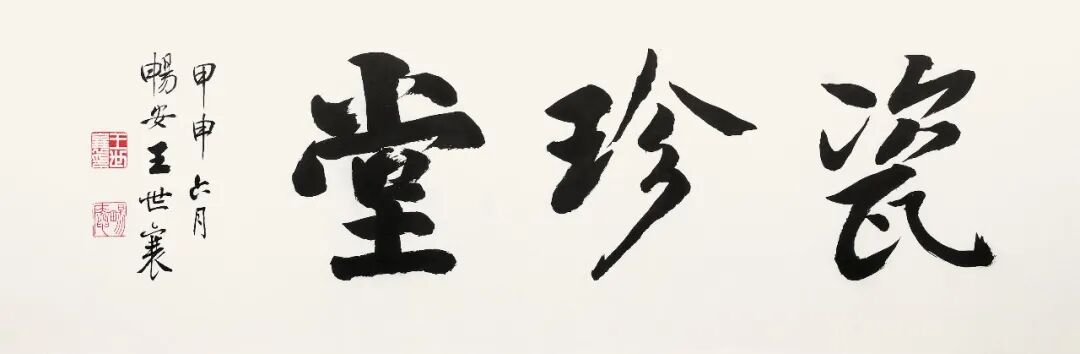 瓷珍堂
甲申六月
暢安王世襄
王世襄
暢安